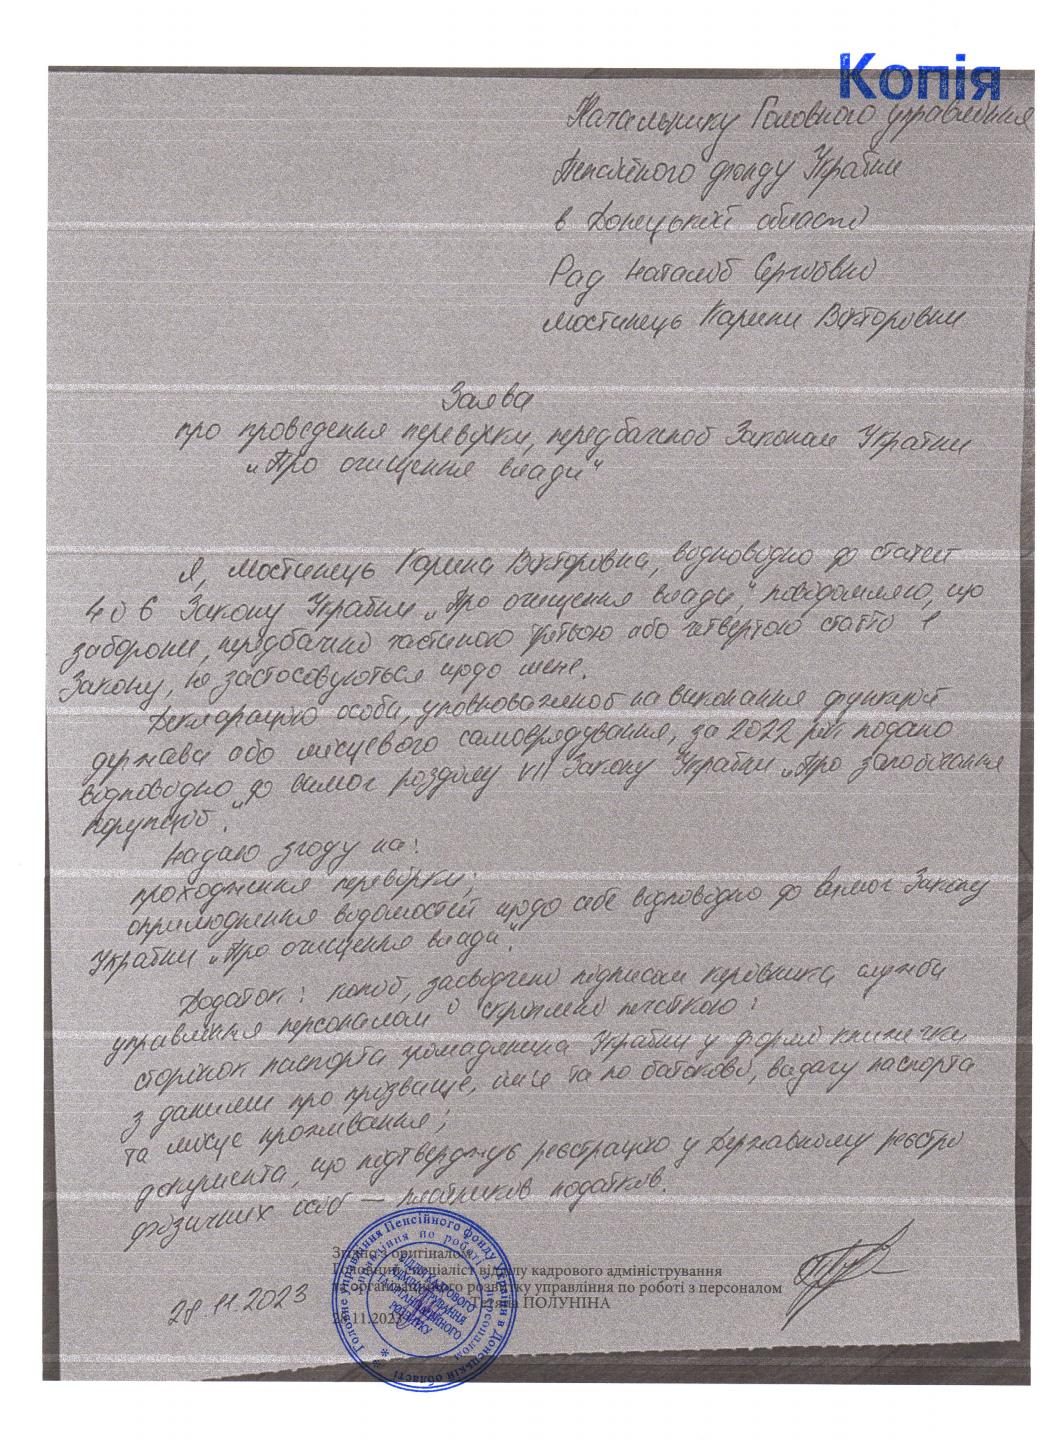 Копія
Начальнику Головного управління
Пенсійного фонду України
в Донецькій області
Рад Наталії Сергіївні
Мостинець Карини Вікторовни
Заява
про проведення перевірки, передбаченої Законом України
„Про очищення влади“
Я, Мостинець Карина Вікторовна, відповідно до статей
4 і 6 Закону України „Про очищення влади“, повідомляю, що
заборони, передбачені частиною третьою або четвертою статті 1
Закону, не застосовуються щодо мене.
Декларацію особи, уповноваженої на виконання функцій
держави або місцевого самоврядування, за 2022 рік подано
відповідно до вимог розділу VII Закону України „Про запобігання
корупції“.
Надаю згоду на:
проходження перевірки;
оприлюднення відомостей щодо себе відповідно до вимог Закону
України „Про очищення влади“.
Додаток: копії, засвідчені підписом керівника служби
управління персоналом і скріплені печаткою:
сторінок паспорта громадянина України у формі книжечки
з даними про прізвище, ім'я та по батькові, видачу паспорта
та місце проживання;
документа, що підтверджує реєстрацію у Державному реєстрі
фізичних осіб — платників податків.
Згідно з оригіналом
Головний спеціаліст відділу кадрового адміністрування
та організаційного розвитку управління по роботі з персоналом
Тетяна ПОЛУНІНА
28.11.2023
28.11.2023
Головне управління Пенсійного фонду України в Донецькій області
управління по роботі з персоналом
ВІДДІЛ КАДРОВОГО
АДМІНІСТРУВАННЯ
ТА ОРГАНІЗАЦІЙНОГО
РОЗВИТКУ